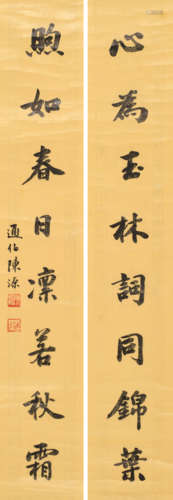 心為玉林詞同錦葉
煦如春日凛若秋霜
通伯陳源